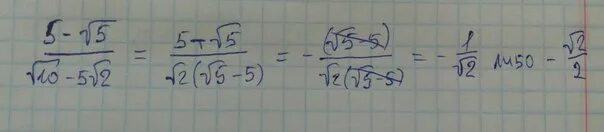 (5 - √5)/(√10 - 5√2) = (5 - √5)/(√2(√5 - 5)) = - (√5 - 5)/(√2(√5 - 5)) = - 1/√2 либо - √2/2